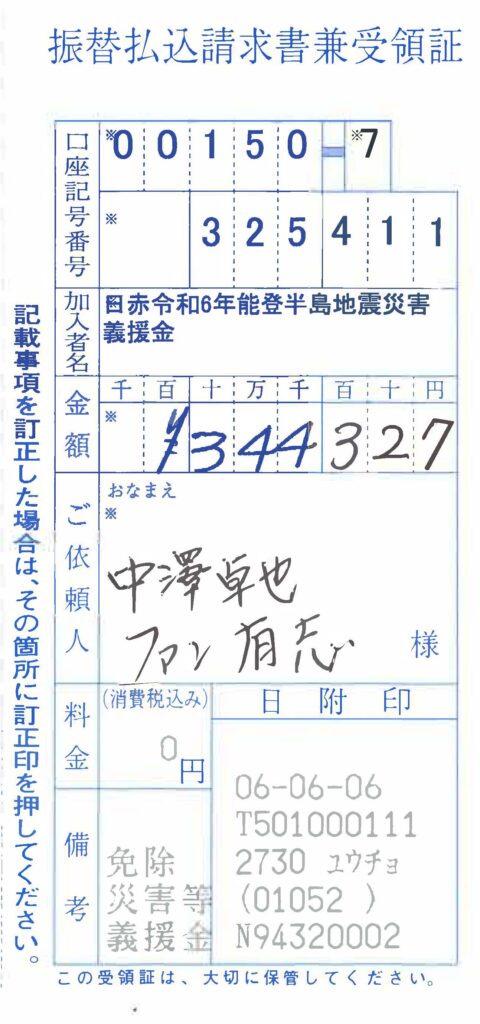 振替払込請求書兼受領証
口座記号番号
※00150-※7
※325411
加入者名
※日赤令和6年能登半島地震災害
義援金
金額
千百十万千百十円
※¥344327
ご依頼人
おなまえ
※
中澤卓也
ファン有志
様
料金
(消費税込み)
0円
日附印
06-06-06
T501000111
2730 ユウチョ
(01052 )
N94320002
備考
免除
災害等
義援金
記載事項を訂正した場合は、その箇所に訂正印を押してください。
この受領証は、大切に保管してください。